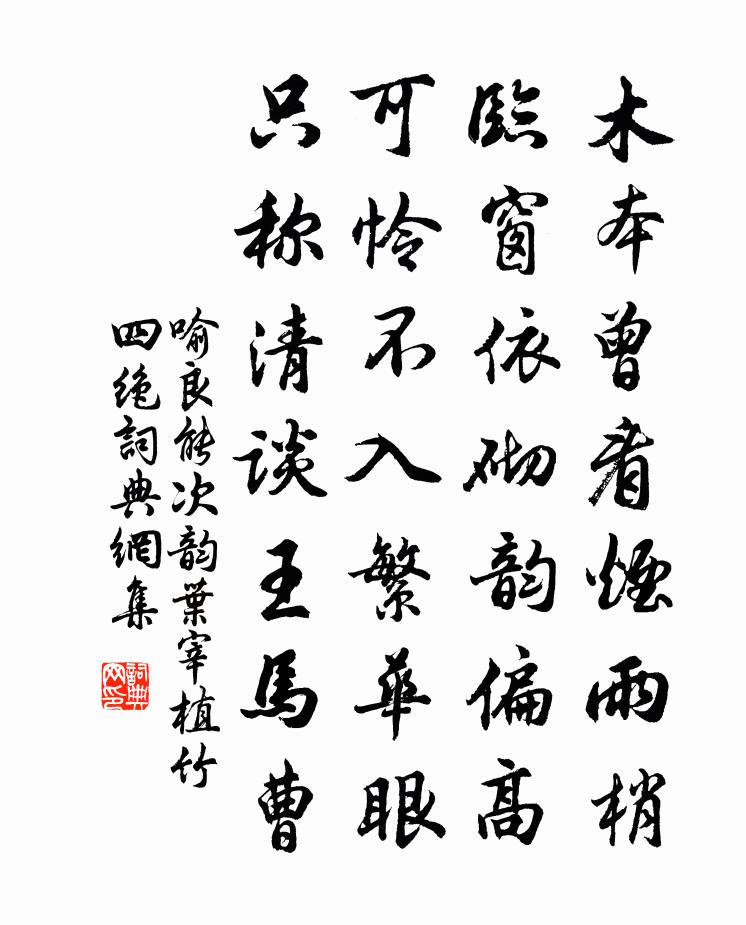 木本曾看煙雨梢
臨窗依砌韵偏高
可怜不入繁華眼
只称清談王馬曹
喻良能次韵葉宰植竹
四绝詞典網集
詞典网印